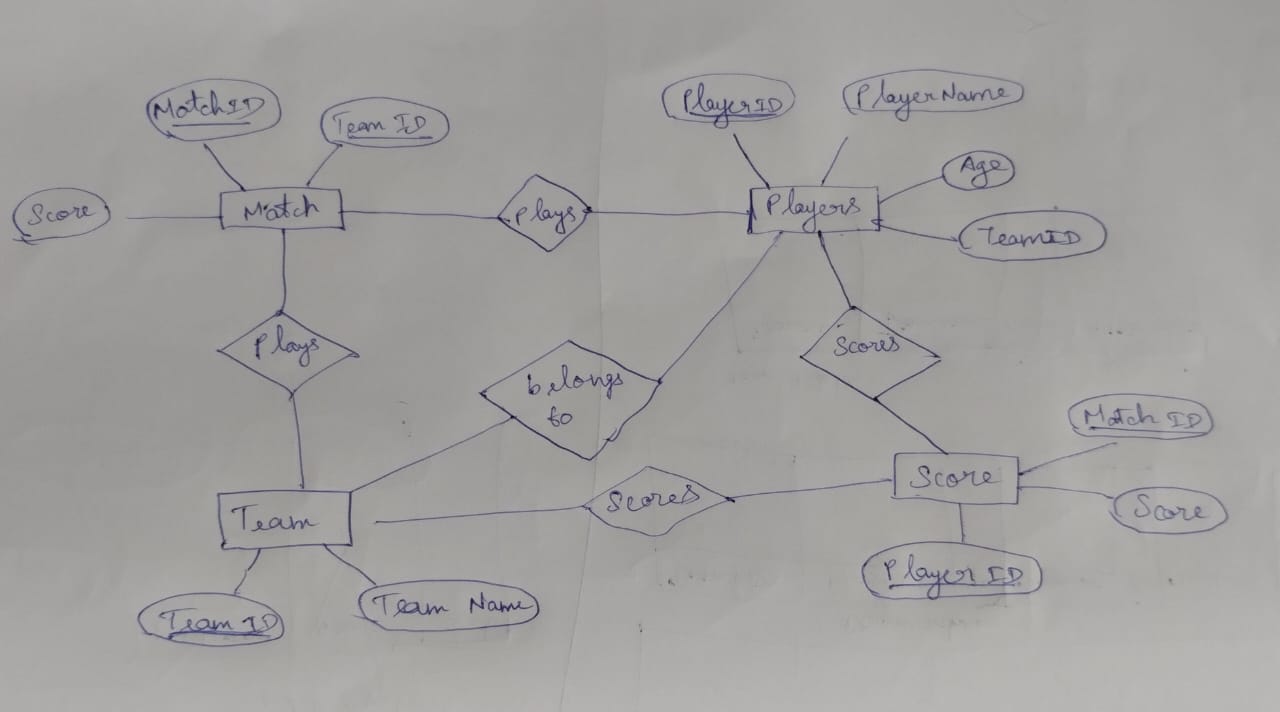 MatchID
Team ID
Score
Match
Plays
PlayerID
PlayerName
Age
Players
TeamID
Plays
belongs
to
Scores
Team
Scores
Score
Match ID
Score
Player ID
Team ID
Team Name